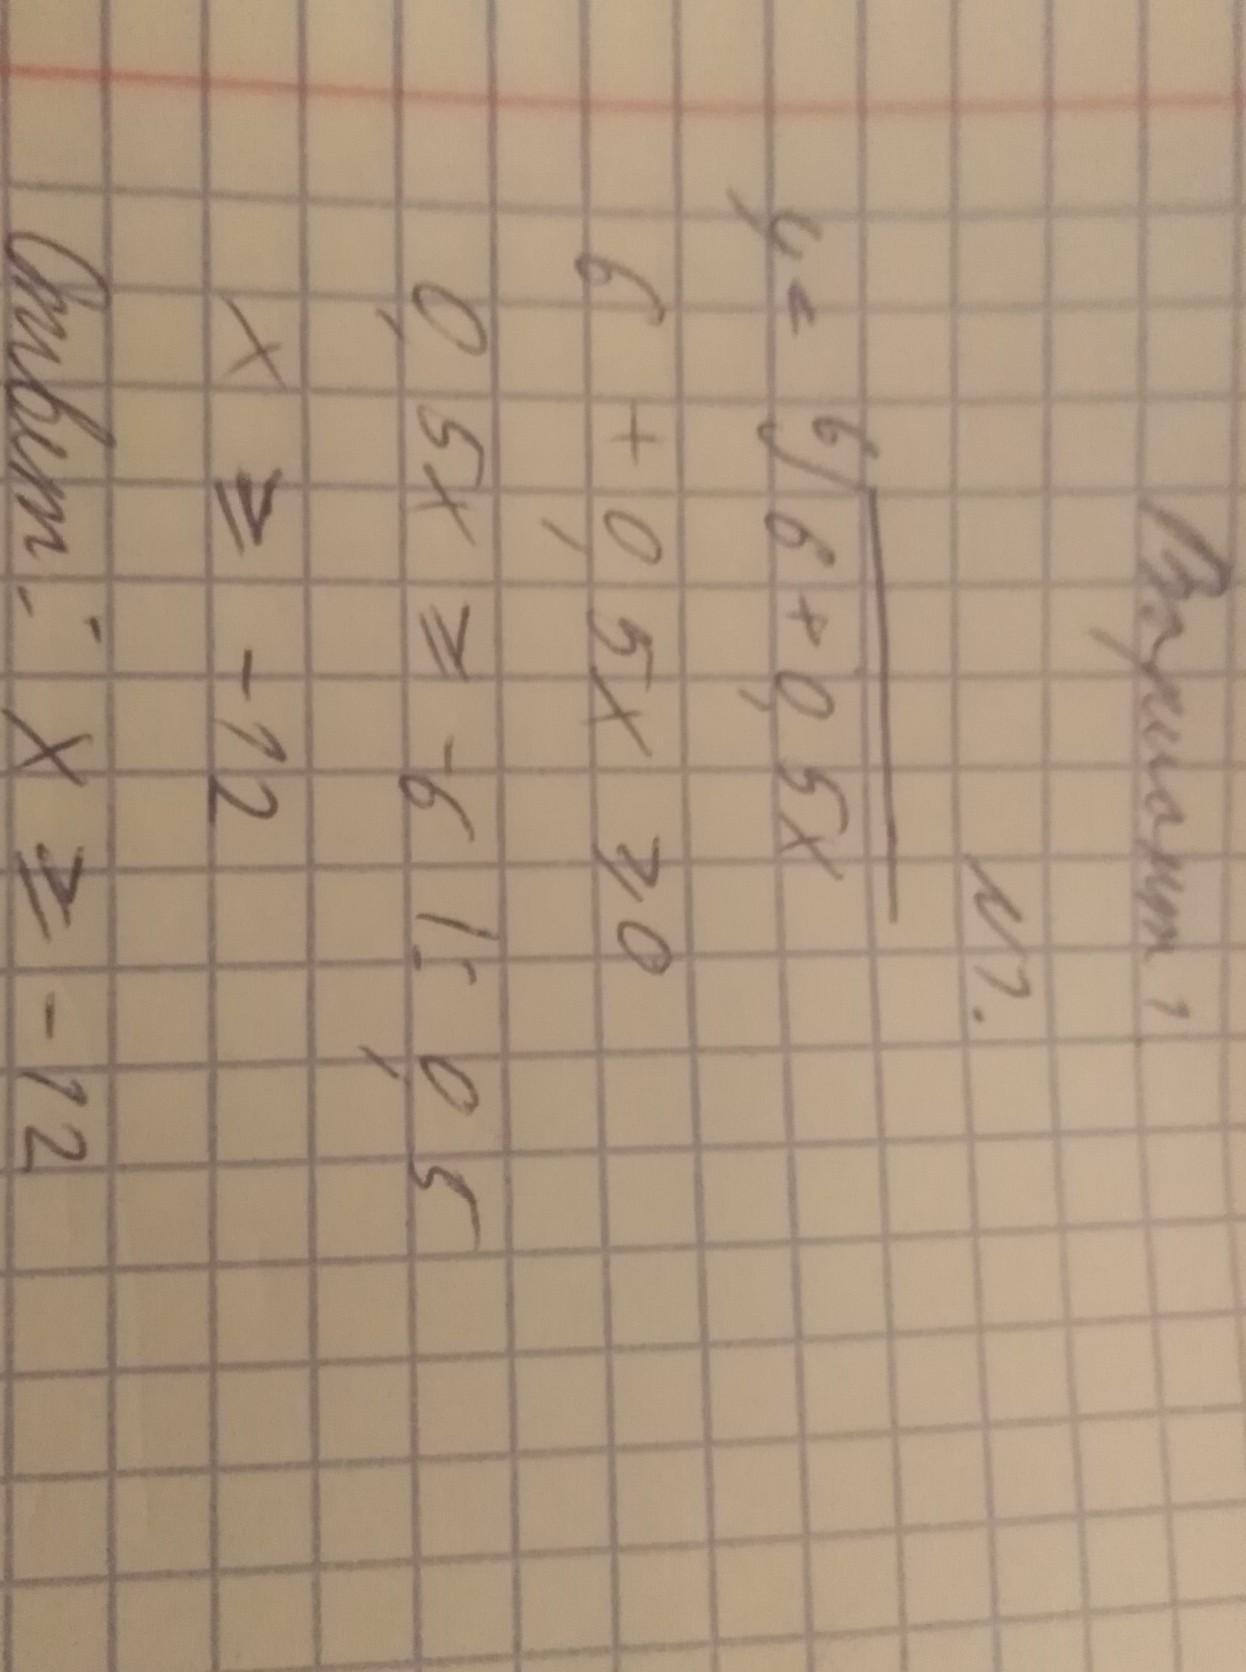 Вариант 1
N1.
y = ⁶√6+0,5x
6 + 0,5x ⩾ 0
0,5x ⩾ -6 | : 0,5
x ⩾ -12
Ответ: x ⩾ -12